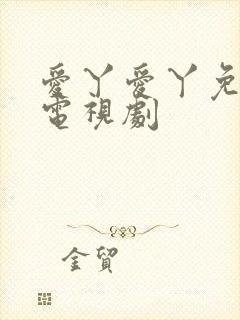 愛丫愛丫免
電視劇
金貿